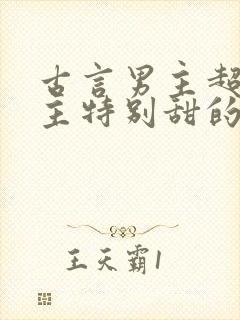 古言男主超
主特别甜的
王天霸1